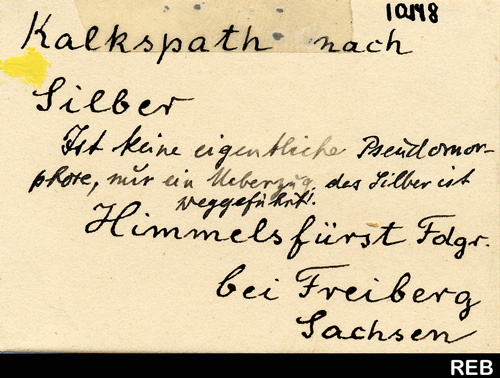 10148
Kalkspath nach
Silber
Ist keine eigentliche Pseudomor-
phose, nur ein Ueberzug, des Silber ist
weggeführt!
Himmelsfürst Fdgr.
bei Freiberg
Sachsen
REB